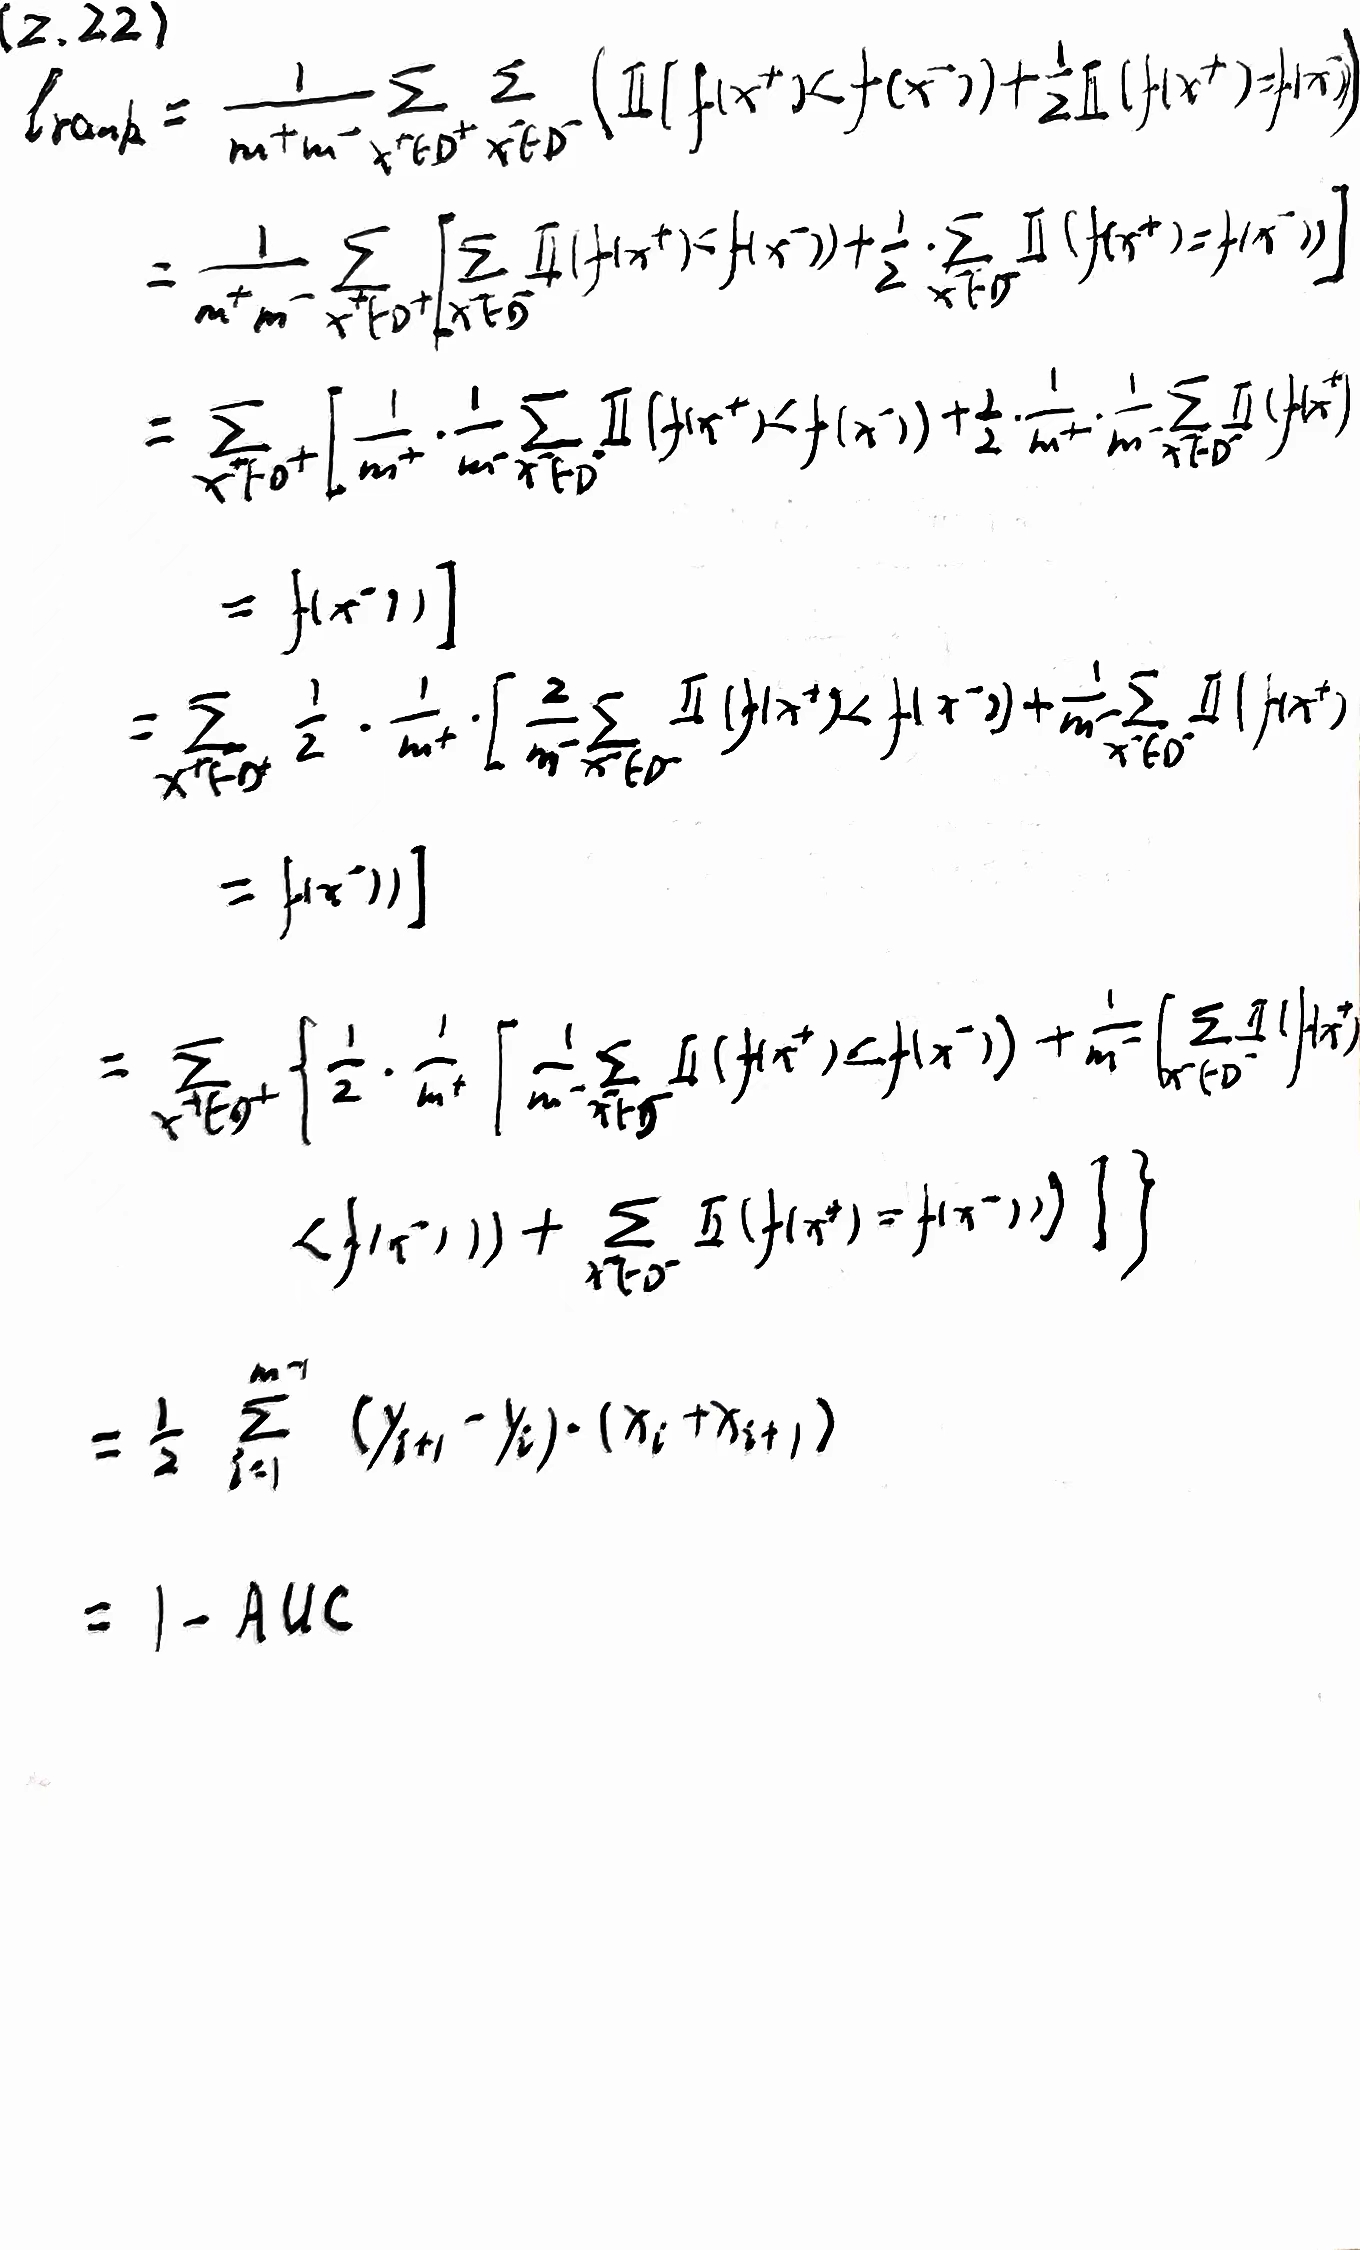 (2.22)
l_rank = 1/(m⁺m⁻) Σ_{x⁺∈D⁺} Σ_{x⁻∈D⁻} (𝕀(f(x⁺)<f(x⁻))+1/2 𝕀(f(x⁺)=f(x⁻)))
= 1/(m⁺m⁻) Σ_{x⁺∈D⁺} [Σ_{x⁻∈D⁻} 𝕀(f(x⁺)<f(x⁻))+1/2·Σ_{x⁻∈D⁻} 𝕀(f(x⁺)=f(x⁻))]
= Σ_{x⁺∈D⁺} [1/m⁺ · 1/m⁻ Σ_{x⁻∈D⁻} 𝕀(f(x⁺)<f(x⁻)) + 1/2 · 1/m⁺ · 1/m⁻ Σ_{x⁻∈D⁻} 𝕀(f(x⁺)
= f(x⁻))]
= Σ_{x⁺∈D⁺} 1/2 · 1/m⁺ · [2/m⁻ Σ_{x⁻∈D⁻} 𝕀(f(x⁺)<f(x⁻)) + 1/m⁻ Σ_{x⁻∈D⁻} 𝕀(f(x⁺)
= f(x⁻))]
= Σ_{x⁺∈D⁺} {1/2 · 1/m⁺ [1/m⁻ Σ_{x⁻∈D⁻} 𝕀(f(x⁺)<f(x⁻)) + 1/m⁻ (Σ_{x⁻∈D⁻} 𝕀(f(x⁺)
<f(x⁻))) + Σ_{x⁻∈D⁻} 𝕀(f(x⁺)=f(x⁻)))]}
= 1/2 Σ_{i=1}^{m-1} (y_{i+1} - y_i)·(x_i + x_{i+1})
= 1 - AUC